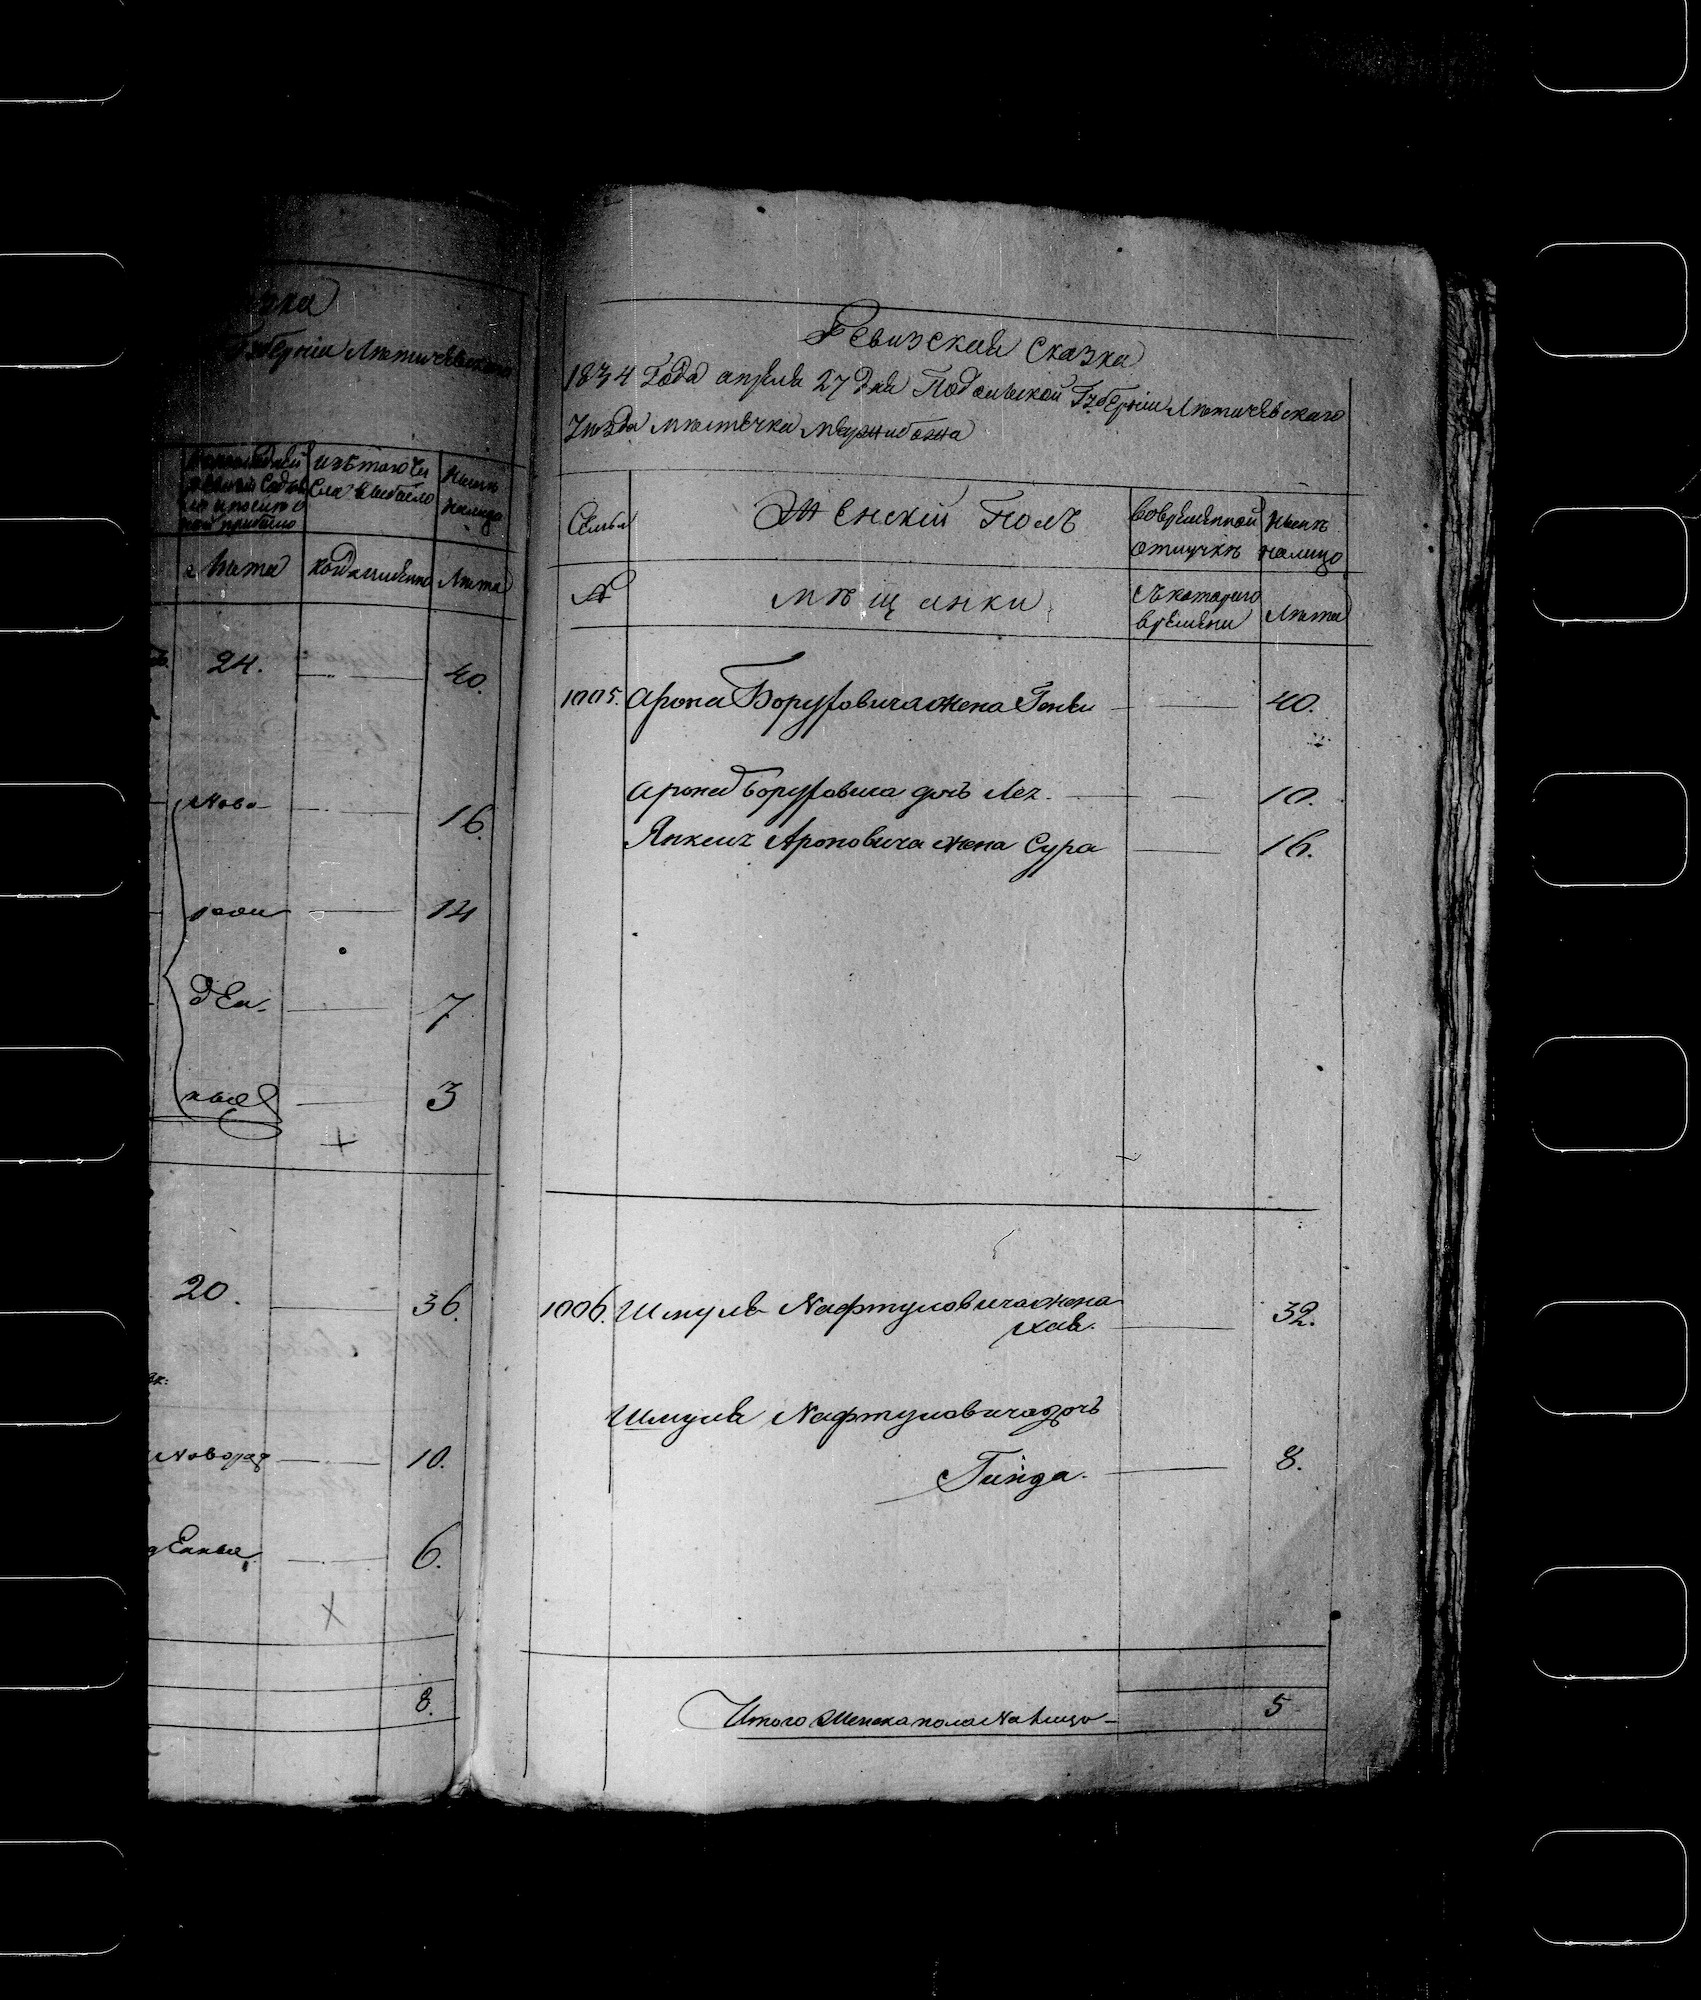 Губерніи Летичевскаго
изъ того чи
сла выбыло
нынѣ
налицо
Лета
когда именно
Лѣта
24. — 40.
ново — 16.
рож — 14
ден — 7
ные — 3
20. — 36.
Новорож — 10.
денные — 6.
8.
Ревизская Сказка
1834 Года апреля 27 дня Подольской Губерніи Летичевскаго
Уезда местечка Межибожа
Семьи
Женскій Полъ
во временной
отлучкѣ
Ныне
налицо
№
мѣщанки
Съ котораго
времени
Лета
1005. Арона Боруховича жена Генья — 40.
Арона Боруховича дочь Лея. — 10.
Янкеля Ароновича жена Сура — 16.
1006. Шмуля Нафтуловича жена
Хая. — 32.
Шмуля Нафтуловича дочь
Гинда. — 8.
Итого женска пола на лицо — 5